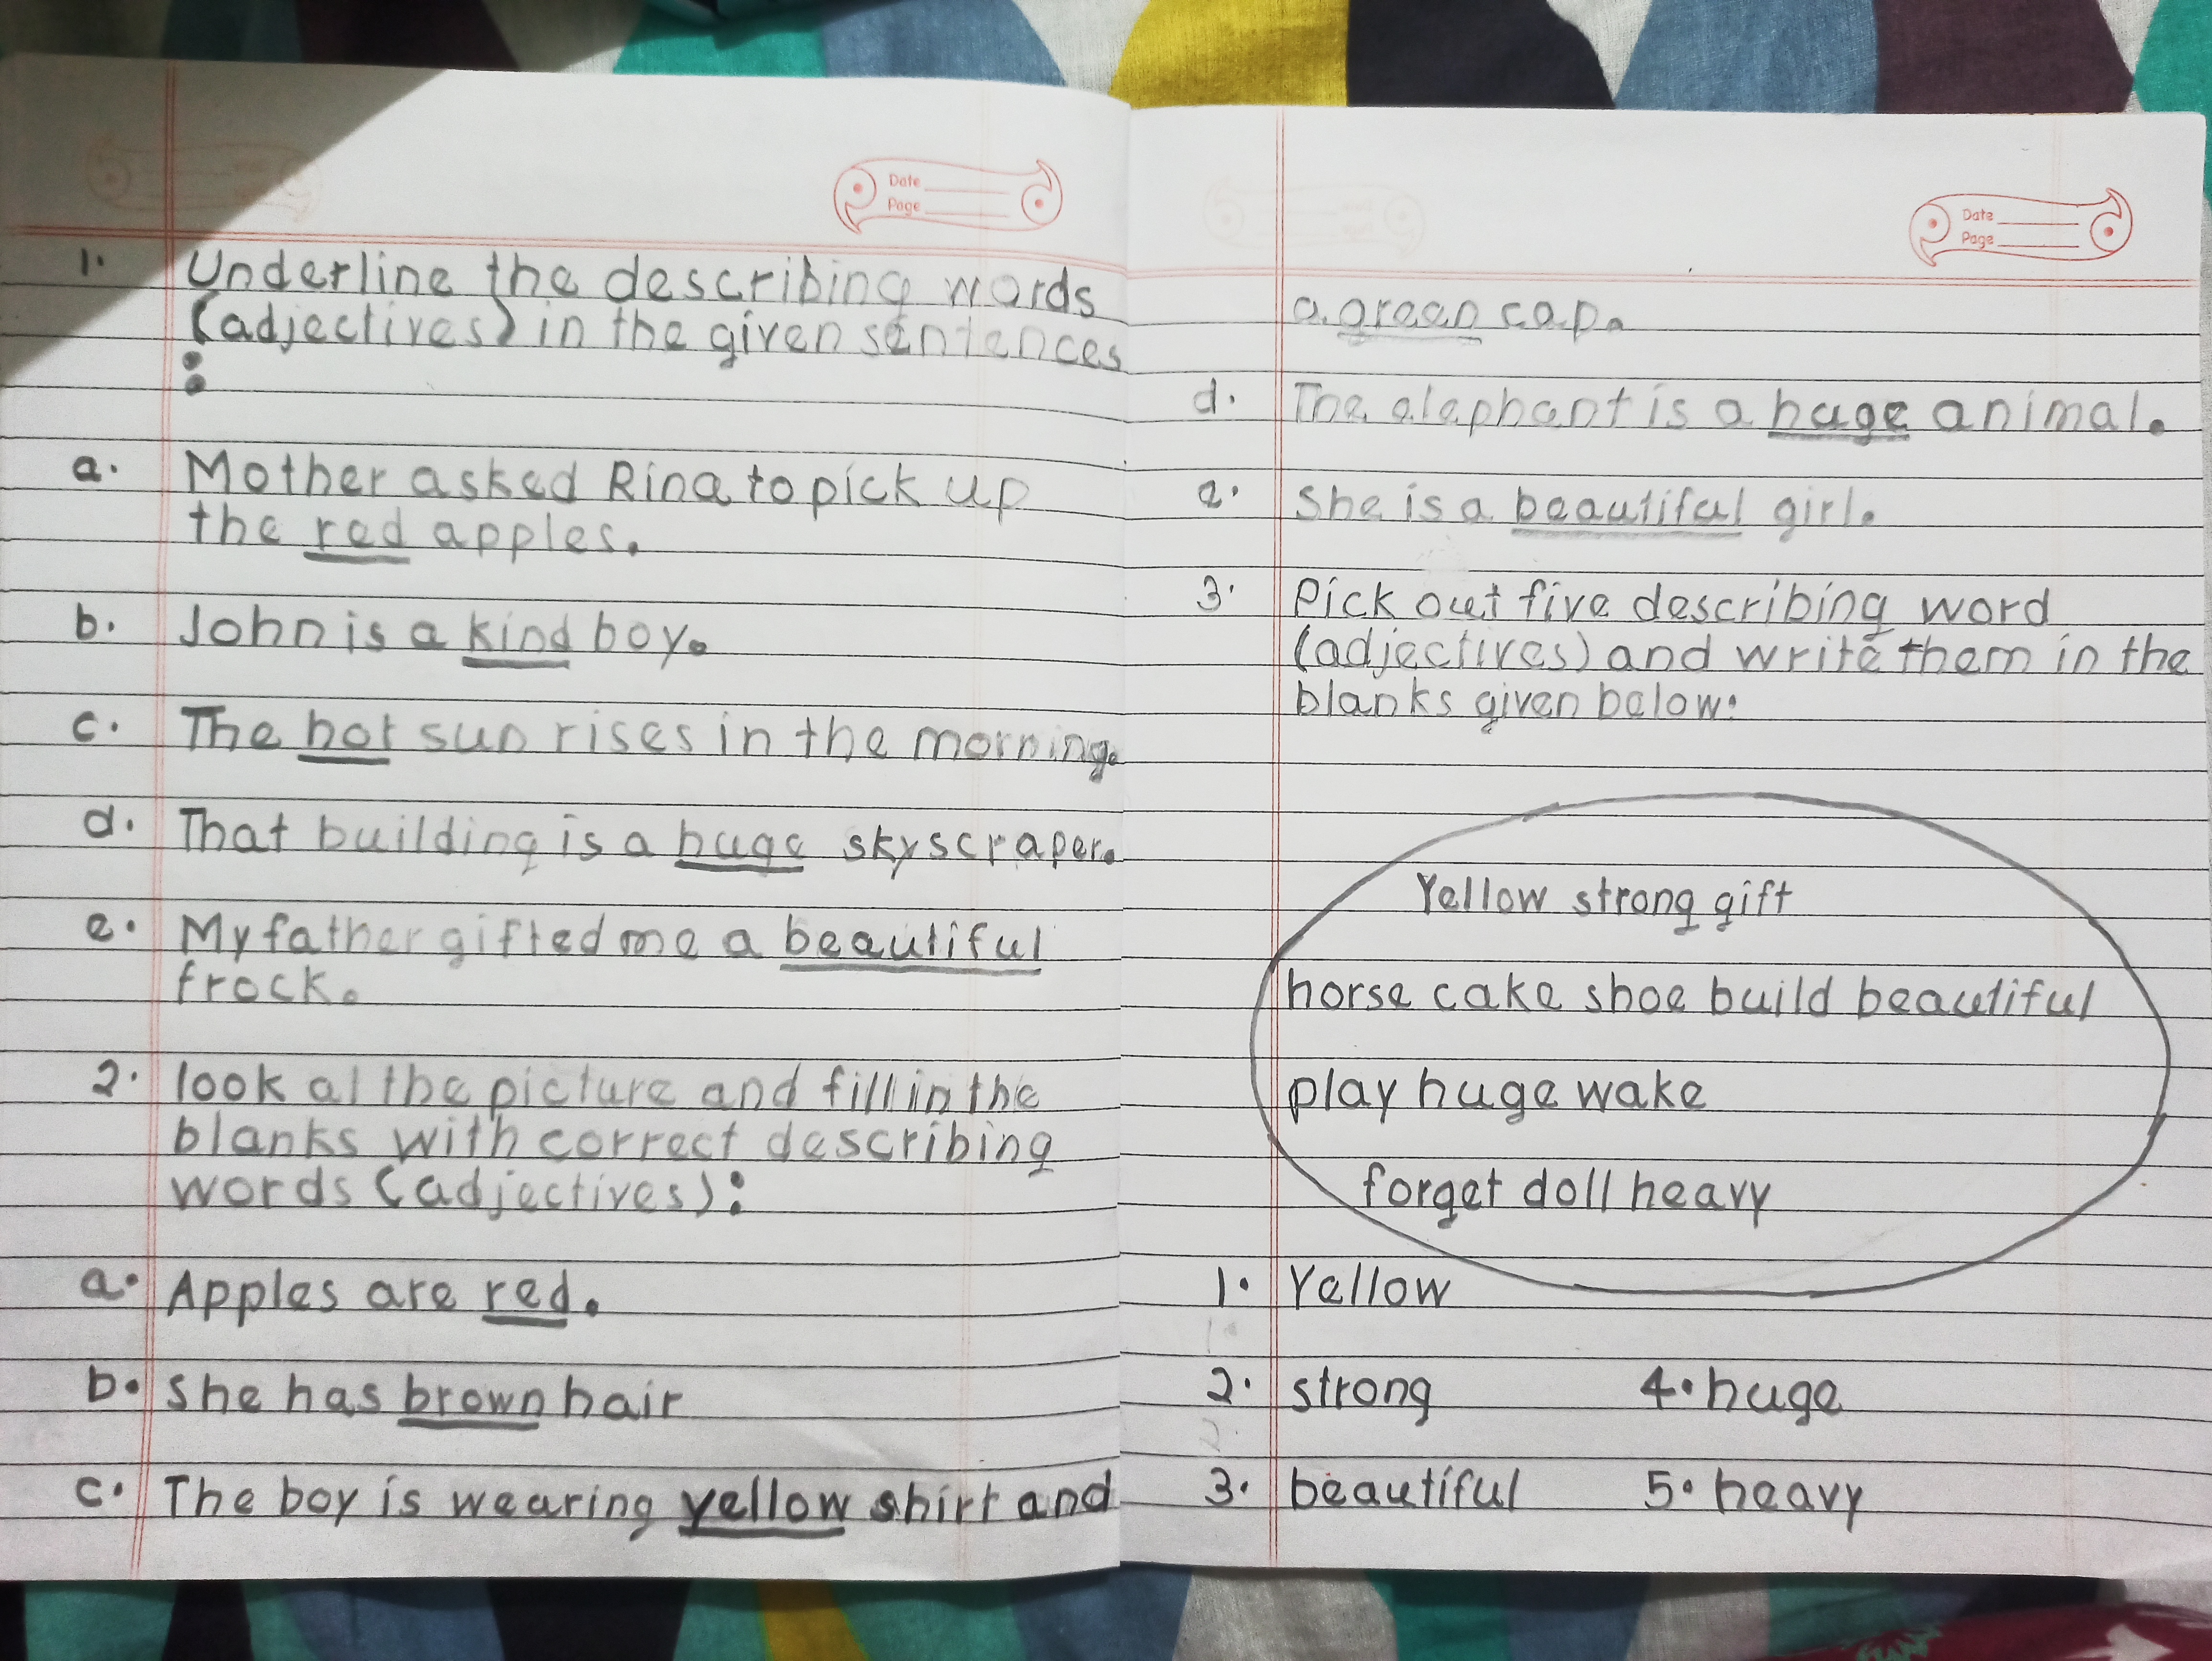 Date
Page
1. Underline the describing words
(adjectives) in the given sentences
:
a. Mother asked Rina to pick up
the red apples.
b. John is a kind boy.
c. The hot sun rises in the morning.
d. That building is a huge skyscraper.
e. My father gifted me a beautiful
frock.
2. look at the picture and fill in the
blanks with correct describing
words (adjectives):
a. Apples are red.
b. She has brown hair
c. The boy is wearing yellow shirt and
Date
Page
a green cap.
d. The elephant is a huge animal.
e. She is a beautiful girl.
3. Pick out five describing word
(adjectives) and write them in the
blanks given below:
Yellow strong gift
horse cake shoe build beautiful
play huge wake
forget doll heavy
1. Yellow
2. strong 4. huge
3. beautiful 5. heavy